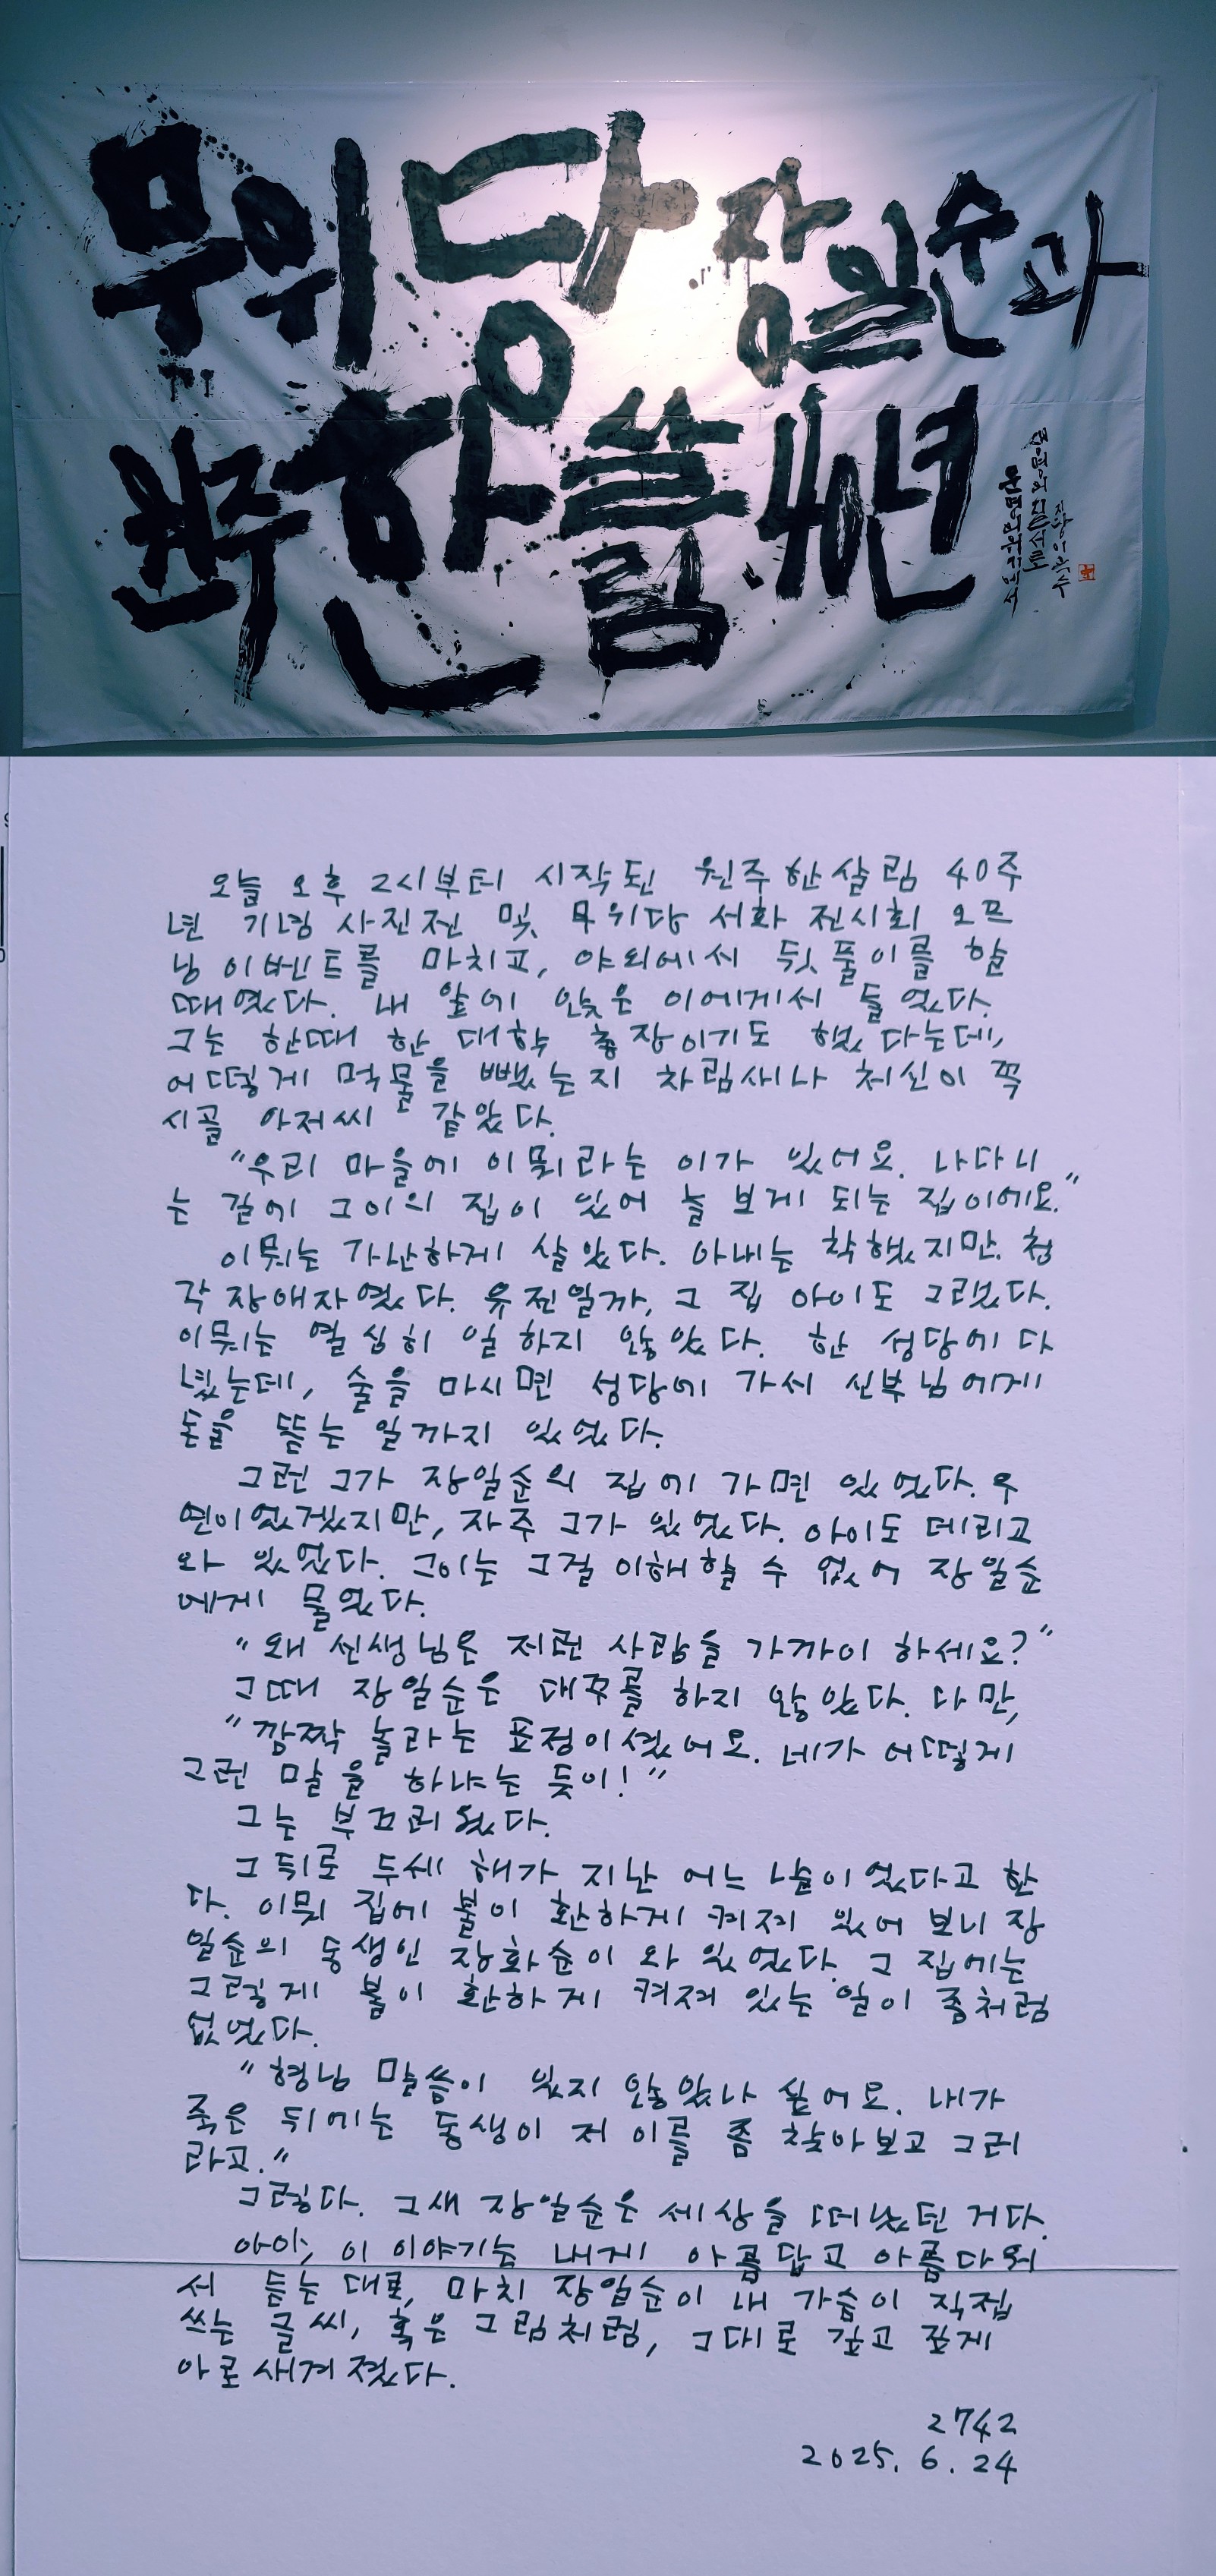 무위당 장일순과
원주 한살림 40년
오늘 오후 2시부터 시작된 원주 한살림 40주
년 기념 사진전 및 무위당 서화 전시회 오프
닝 이벤트를 마치고, 야외에서 뒷풀이를 할
때였다. 내 앞에 앉은 이에게서 들었다.
그는 한때 한 대학 총장이기도 했다는데,
어떻게 먹물을 뺐는지 차림새나 처신이 꼭
시골 아저씨 같았다.
"우리 마을에 이뭐라는 이가 있어요. 나다니
는 길에 그이의 집이 있어 늘 보게 되는 집이에요."
이뭐는 가난하게 살았다. 아내는 착했지만 청
각 장애자였다. 유전일까, 그 집 아이도 그랬다.
이뭐는 열심히 일 하지 않았다. 한 성당에 다
녔는데, 술을 마시면 성당에 가서 신부님에게
돈을 뜯는 일까지 있었다.
그런 그가 장일순의 집에 가면 있었다. 우
연이었겠지만, 자주 그가 있었다. 아이도 데리고
와 있었다. 그이는 그걸 이해할 수 없어 장일순
에게 물었다.
"왜 선생님은 저런 사람을 가까이 하세요?"
그때 장일순은 대꾸를 하지 않았다. 다만,
"깜짝 놀라는 표정이셨어요. 네가 어떻게
그런 말을 하냐는 듯이!"
그는 부끄러웠다.
그 뒤로 두세 해가 지난 어느 날이었다고 한
다. 이뭐 집에 불이 환하게 켜져 있어 보니 장
일순의 동생인 장화순이 와 있었다. 그 집에는
그렇게 불이 환하게 켜져 있는 일이 좀처럼
없었다.
"형님 말씀이 있지 않았나 싶어요. 내가
죽은 뒤에는 동생이 저 이를 좀 찾아보고 그러
라고."
그렇다. 그새 장일순은 세상을 떠났던 거다.
아아, 이 이야기는 내게 아름답고 아름다워
서 듣는 대로, 마치 장일순이 내 가슴에 직접
쓰는 글씨, 혹은 그림처럼, 그대로 깊고 깊게
아로새겨졌다.
2742
2025. 6. 24